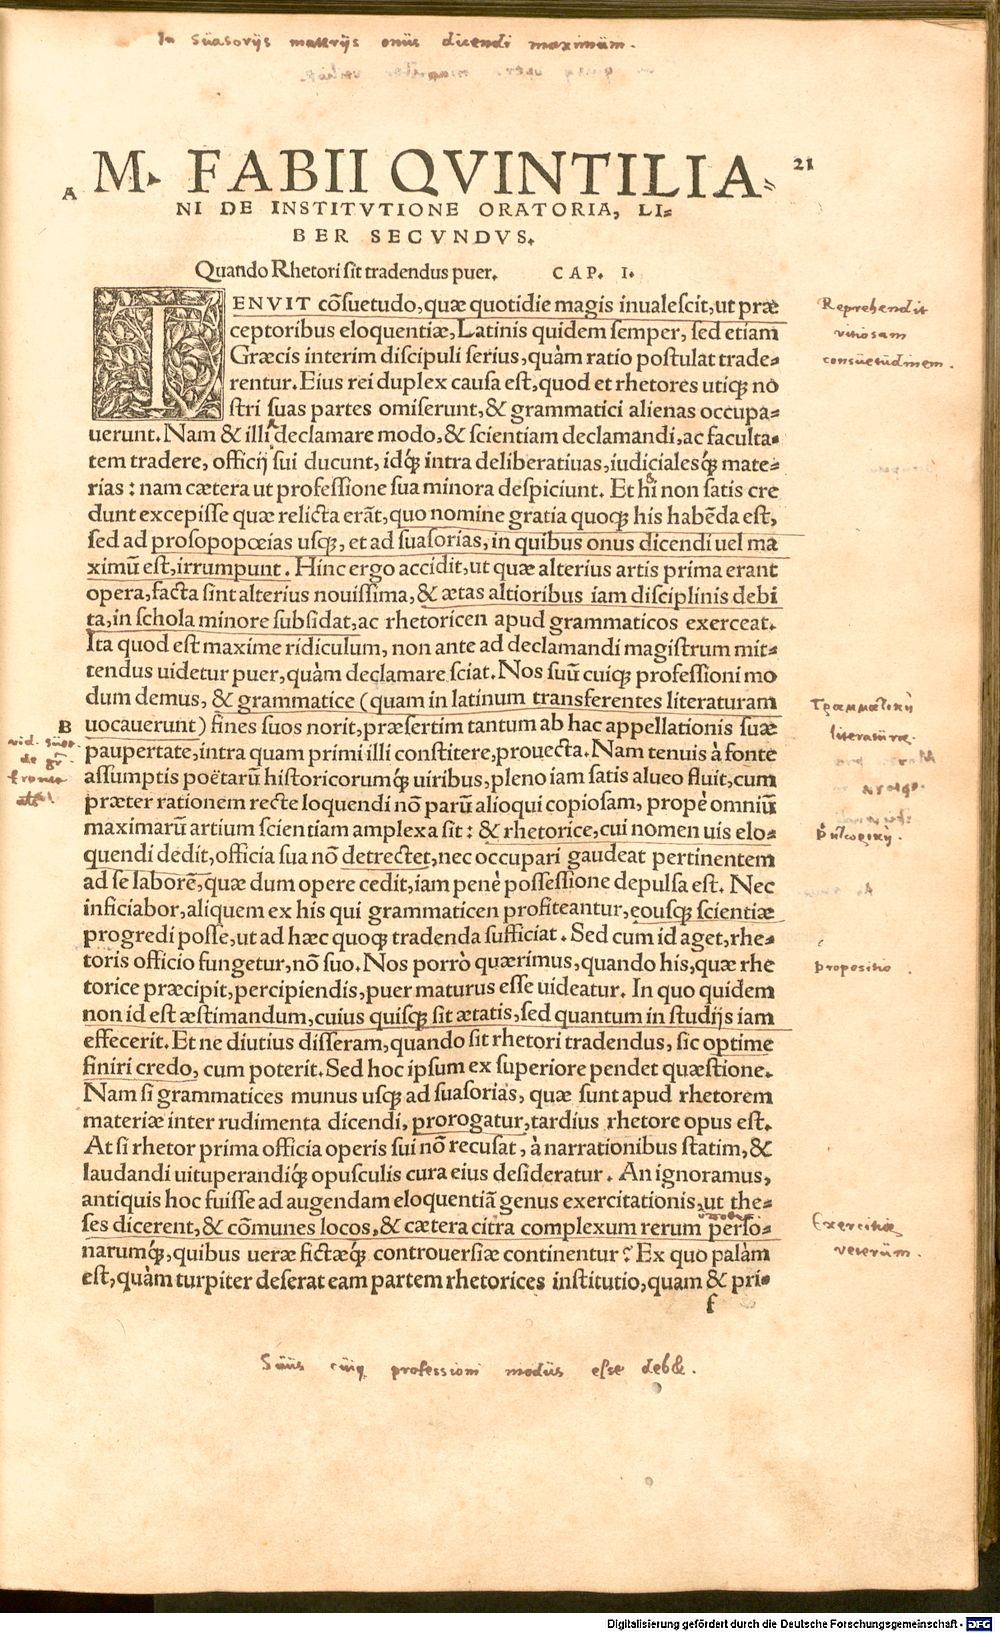 In suasorijs materijs onus dicendi maximum.
21
A M. FABII QVINTILIA-
NI DE INSTITVTIONE ORATORIA, LI-
BER SECVNDVS.
Quando Rhetori sit tradendus puer. CAP. I.
TENVIT cõsuetudo, quæ quotidie magis inualescit, ut præ
ceptoribus eloquentiæ, Latinis quidem semper, sed etiam
Græcis interim discipuli serius, quàm ratio postulat trade-
rentur. Eius rei duplex causa est, quod et rhetores utiqꝫ no
stri suas partes omiserunt, & grammatici alienas occupa-
uerunt. Nam & illi declamare modo, & scientiam declamandi, ac faculta-
tem tradere, officij sui ducunt, idqꝫ intra deliberatiuas, iudicialesqꝫ mate-
rias: nam cætera ut professione sua minora despiciunt. Et hi non satis cre
dunt excepisse quæ relicta erãt, quo nomine gratia quoqꝫ his habẽda est,
sed ad prosopopœias usqꝫ, et ad suasorias, in quibus onus dicendi uel ma
ximũ est, irrumpunt. Hinc ergo accidit, ut quæ alterius artis prima erant
opera, facta sint alterius nouissima, & ætas altioribus iam disciplinis debi
ta, in schola minore subsidat, ac rhetoricen apud grammaticos exerceat.
Ita quod est maxime ridiculum, non ante ad declamandi magistrum mit-
tendus uidetur puer, quàm declamare sciat. Nos suũ cuiqꝫ professioni mo
dum demus, & grammatice (quam in latinum transferentes literaturam
B uocauerunt) fines suos norit, præsertim tantum ab hac appellationis suæ
paupertate, intra quam primi illi constitere, prouecta. Nam tenuis à fonte
assumptis poëtarũ historicorumqꝫ uiribus, pleno iam satis alueo fluit, cum
præter rationem recte loquendi nõ parũ alioqui copiosam, propè omniũ
maximarũ artium scientiam amplexa sit: & rhetorice, cui nomen uis elo-
quendi dedit, officia sua nõ detrectet, nec occupari gaudeat pertinentem
ad se laborẽ, quæ dum opere cedit, iam penè possessione depulsa est. Nec
inficiabor, aliquem ex his qui grammaticen profiteantur, eousqꝫ scientiæ
progredi posse, ut ad hæc quoqꝫ tradenda sufficiat. Sed cum id aget, rhe-
toris officio fungetur, nõ suo. Nos porrò quærimus, quando his, quæ rhe
torice præcipit, percipiendis, puer maturus esse uideatur. In quo quidem
non id est æstimandum, cuius quisqꝫ sit ætatis, sed quantum in studijs iam
effecerit. Et ne diutius disseram, quando sit rhetori tradendus, sic optime
finiri credo, cum poterit. Sed hoc ipsum ex superiore pendet quæstione.
Nam si grammatices munus usqꝫ ad suasorias, quæ sunt apud rhetorem
materiæ inter rudimenta dicendi, prorogatur, tardius rhetore opus est.
At si rhetor prima officia operis sui nõ recusat, à narrationibus statim, &
laudandi uituperandiqꝫ opusculis cura eius desideratur. An ignoramus,
antiquis hoc fuisse ad augendam eloquentiã genus exercitationis, ut the-
ses dicerent, & cõmunes locos, & cætera citra complexum rerum perso-
narumqꝫ, quibus ueræ fictæqꝫ controuersiæ continentur? Ex quo palàm
est, quàm turpiter deserat eam partem rhetorices institutio, quam & pri-
f
Reprehendit
vitiosam
consuetudinem.
Γραμματικὴ
literatura.
ῥητορικὴ.
propositio.
Exercitia
veterum.
Suus cuiqꝫ professioni modus esse deb&.
Digitalisierung gefördert durch die Deutsche Forschungsgemeinschaft - DFG